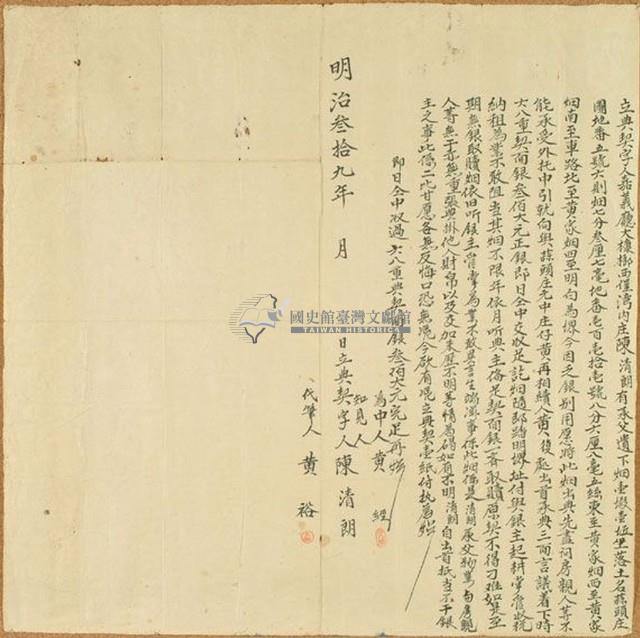 立典契字人嘉義廳大槺榔西堡湾內庄陳清朗有承父遺下烟壹坵坐落土名蒜頭庄
園地番五號六則烟七分叁厘七毫地番壱百壱拾壱號八分六厘八毫五絲東至黄家烟西至黄家
烟南至車路北至黄家烟四至明白為界今因乏銀別用愿將此烟出典先盡问房親人等不
能承受外托中引就向與蒜頭庄元中庄仔黄再相續人黄後處出首承典三面言議着下時
六八重契面銀叁佰大元正銀即日仝中交收足訖烟隨即踏明界址付與銀主起耕掌管收稅
納租為業不敢阻当其烟不限年依月听典主俻足契面銀一齊取贖原契不得刁难如是至
期無銀取贖烟依旧听銀主掌管為業不敢異言生端滋事保此烟係是清朗承父物業与房親
人等無干亦無重張典掛他人財帛以及交加來歷不明等情為碍如有不明清朗自出首抵当不干銀
主之事此係二比甘愿各無反悔口恐無凴今欲有凴立典契壱紙付执為炤
即日仝中收過六八重典契面銀叁佰大元完足再炤
為中人黄 經
知見人
明治叁拾九年 月 日立典契字人陳清朗
代筆人黄 裕
國史館臺灣文獻館
TAIWAN HISTORICA